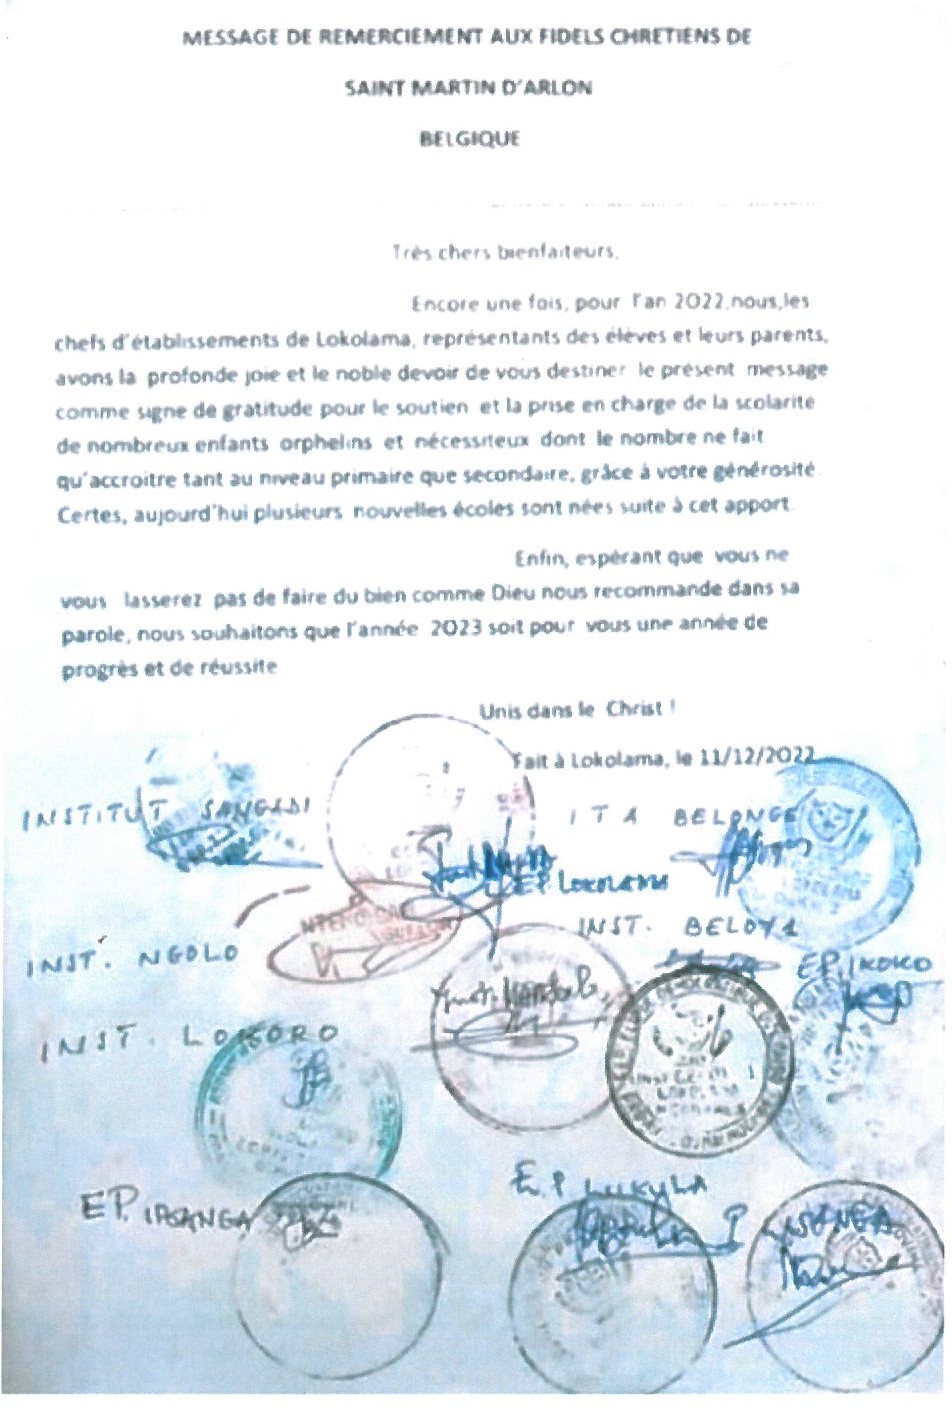 MESSAGE DE REMERCIEMENT AUX FIDELS CHRETIENS DE
SAINT MARTIN D'ARLON
BELGIQUE
Très chers bienfaiteurs,
Encore une fois, pour l'an 2022,nous,les
chefs d'établissements de Lokolama, représentants des élèves et leurs parents,
avons la profonde joie et le noble devoir de vous destiner le présent message
comme signe de gratitude pour le soutien et la prise en charge de la scolarité
de nombreux enfants orphelins et nécessiteux dont le nombre ne fait
qu'accroitre tant au niveau primaire que secondaire, grâce à votre générosité.
Certes, aujourd'hui plusieurs nouvelles écoles sont nées suite à cet apport.
Enfin, espérant que vous ne
vous lasserez pas de faire du bien comme Dieu nous recommande dans sa
parole, nous souhaitons que l'année 2023 soit pour vous une année de
progrès et de réussite
Unis dans le Christ !
Fait à Lokolama, le 11/12/2022
INSTITUT
ITA BELONGE
E.P. LOKOLAMA
INST. NGOLO
INST. BELOYA
EP. IKOKO
INST. LOKORO
EP.
E.P LUKULA